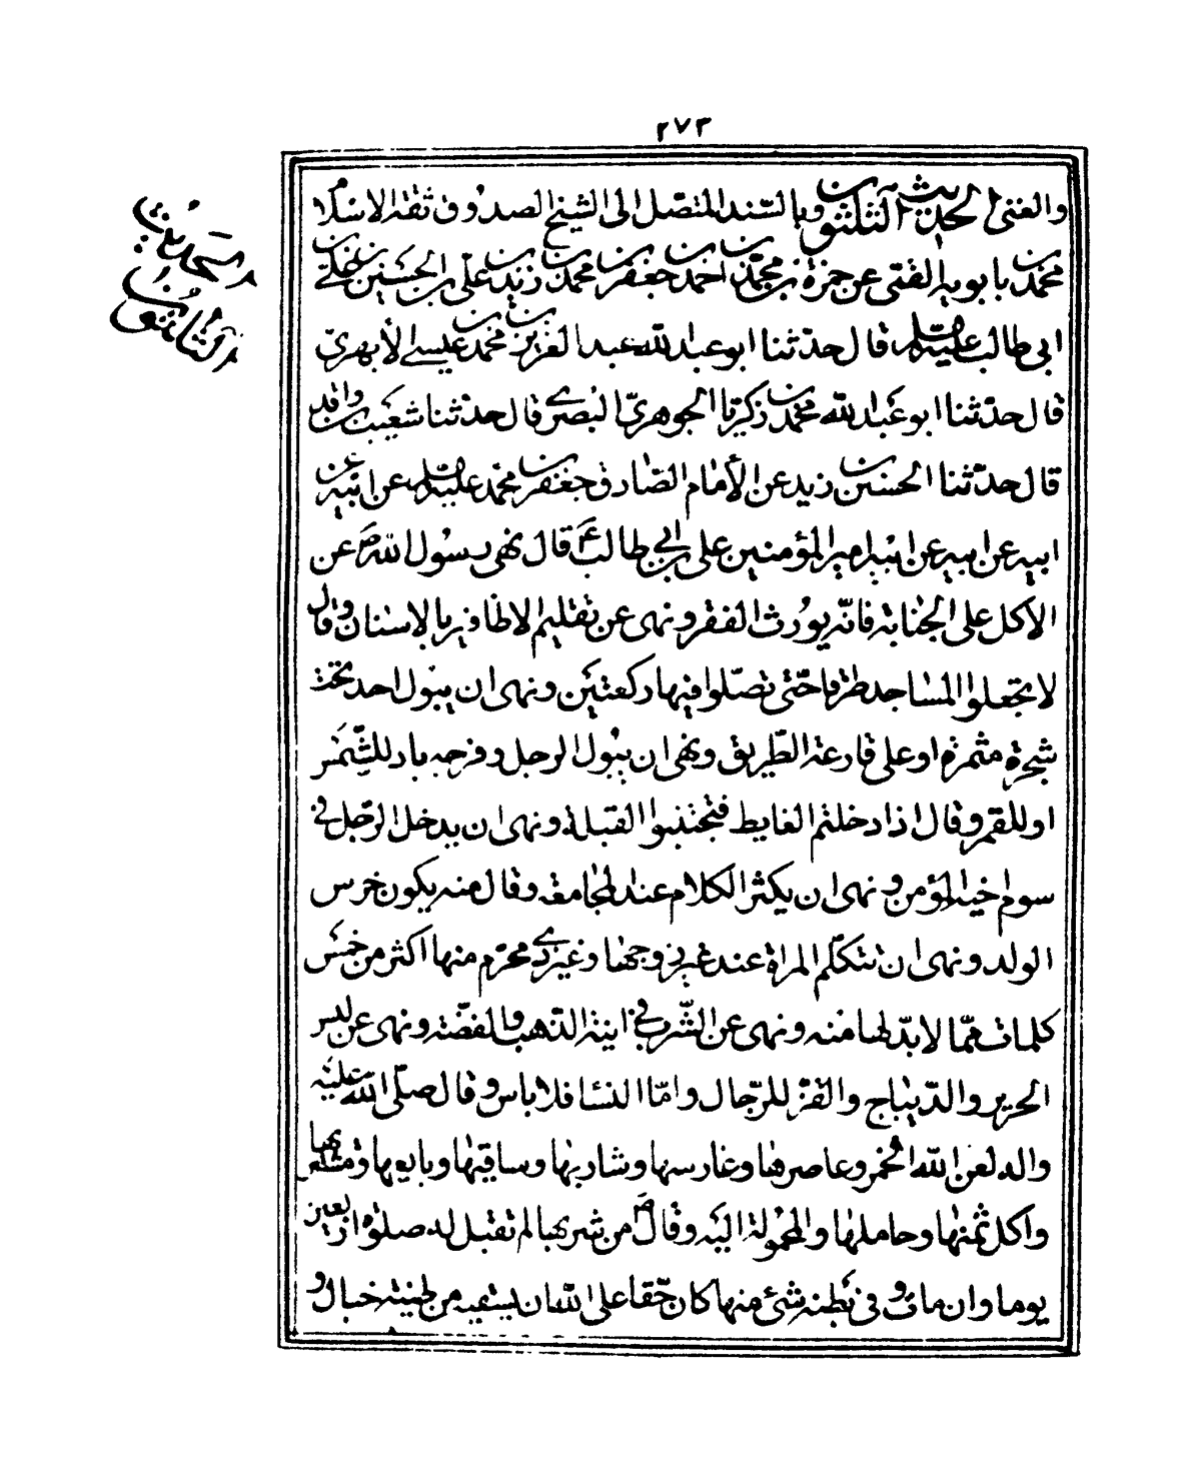 ٢٧٣
والغنى الحديث الثلثون وبالسند المتصل الى الشيخ الصدوق ثقة الاسلام
محمد بن بابويه القمى عن حمزة بن محمد بن احمد بن جعفر بن محمد بن زيد بن على بن الحسين بن على بن
ابى طالب عليه السلام قال حدثنا ابو عبد الله عبد العزيز بن محمد بن عيسى الأبهرى
قال حدثنا ابو عبد الله محمد بن زكريا الجوهرى البصرى قال حدثنا شعيب بن واقد
قال حدثنا الحسين بن زيد عن الأمام الصادق جعفر بن محمد عليه السلام عن ابيه عن
ابيه عن ابيه عن ابيه امير المؤمنين على بن ابى طالب ع قال نهى رسول الله ص عن
الاكل على الجنابة فانه يورث الفقر ونهى عن تقليم الاظافير بالاسنان وقال
لا تجعلوا المساجد طرقا حتى تصلوا فيها ركعتين ونهى ان يبول احد تحت
شجرة مثمرة او على قارعة الطريق ونهى ان يبول الرجل وفرجه باد للشمس
او للقمر وقال اذا دخلتم الغايط فتجنبوا القبلة ونهى ان يدخل الرجل فى
سوم اخيه المؤمن ونهى ان يكثر الكلام عند المجامعة وقال منه يكون خرس
الولد ونهى ان تتكلم المراة عند غير زوجها وغير ذى محرم منها اكثر من خمس
كلمات مما لا بد لها منه ونهى عن الشرب فى انية الذهب والفضة ونهى عن لبس
الحرير والديباج والقز للرجال واما النسا فلا باس وقال صلى الله عليه
واله لعن الله الخمر وعاصرها وغارسها وشاربها وساقيها وبايعها ومشتريها
واكل ثمنها وحاملها والمحمولة اليه وقال ص من شربها لم تقبل له صلوة اربعين
يوما وان مات وفى بطنه شئ منها كان حقا على الله ان يسقيه من طينة خبال و
الحديث
الثلثون